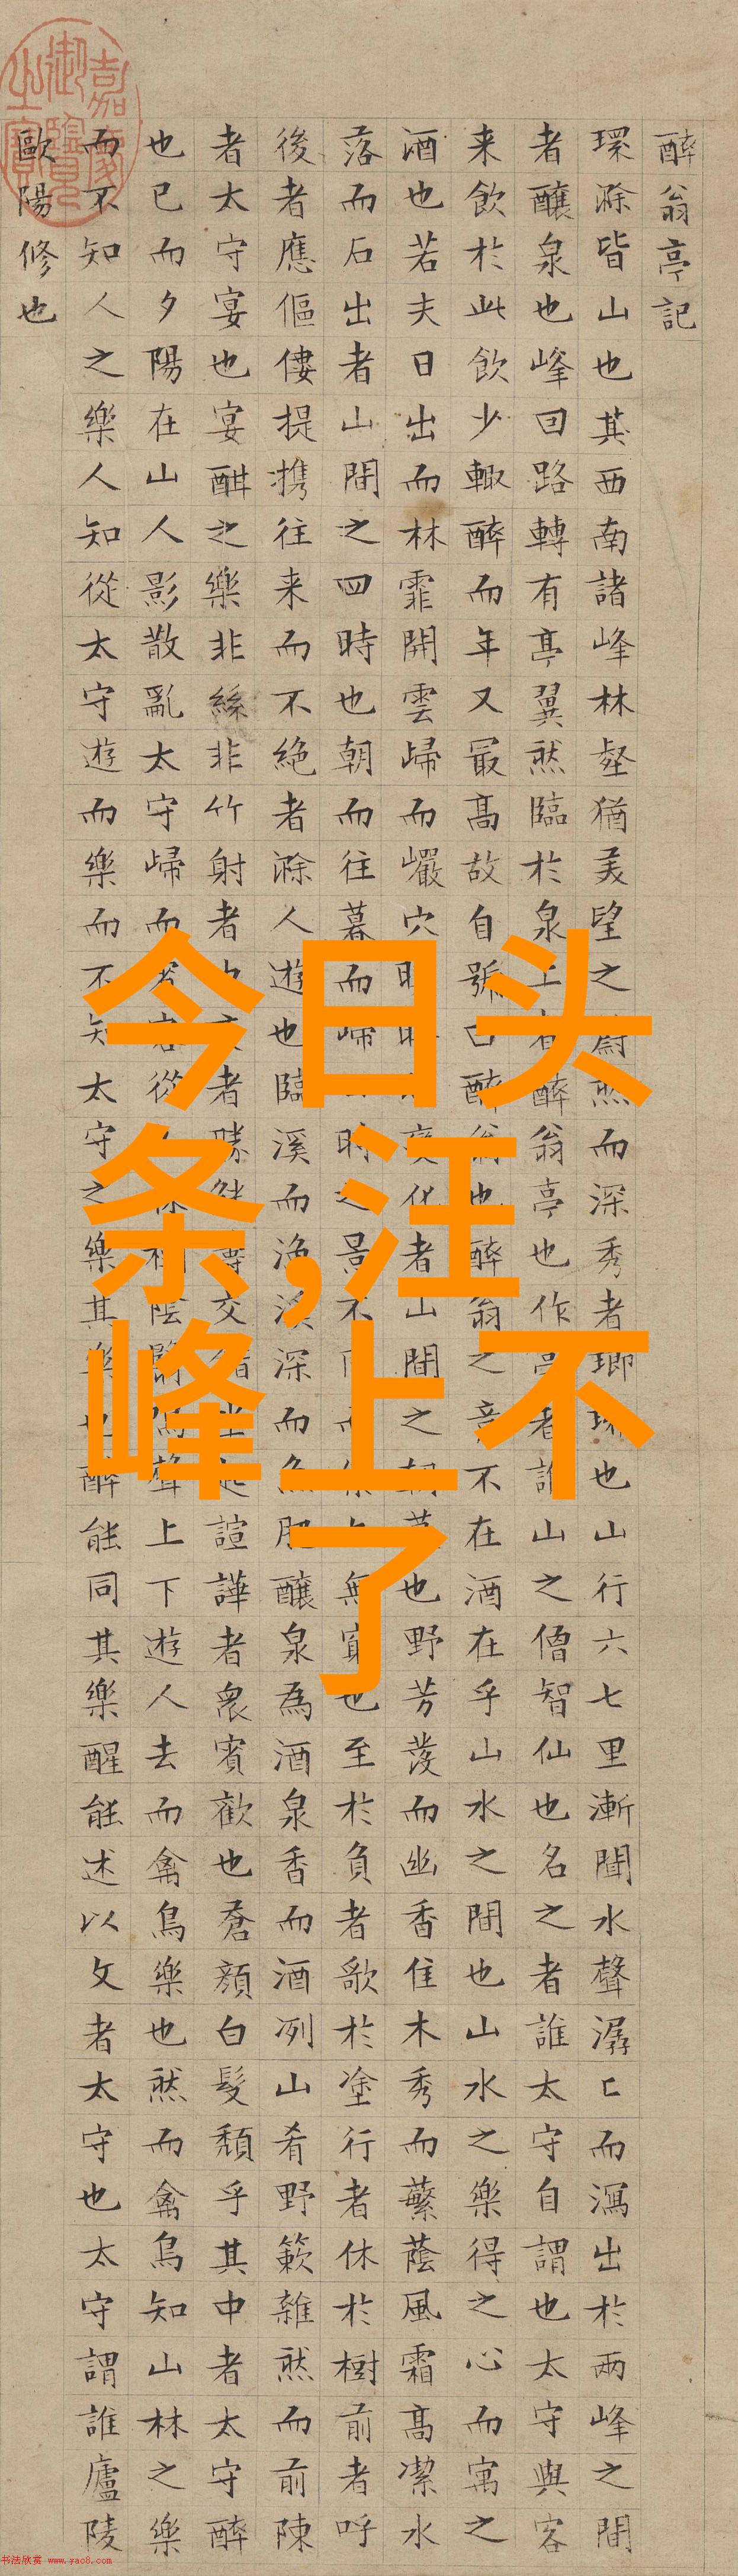 醉翁亭記
環滁皆山也其西南諸峰林壑猶美望之蔚然而深秀者瑯琊也山行六七里漸聞水聲潺〻而瀉出於兩峰之間
者釀泉也峰回路轉有亭翼然臨於泉上者醉翁亭也作亭者誰山之僧智仙也名之者誰太守自謂也太守與客
来飲於此飲少輒醉而年又最高故自號曰醉翁也醉翁之意不在酒在乎山水之間也山水之樂得之心而寓之
酒也若夫日出而林霏開雲歸而巖穴變化者山間之朝暮也野芳發而幽香佳木秀而蘩蔭風霜高潔水
落而石出者山間之四時也朝而往暮而歸時之景不同而無窮也至於負者歌於塗行者休於樹前者呼
後者應傴僂提攜往来而不絕者滁人遊也臨溪而漁溪深而魚肥釀泉為酒泉香而酒冽山肴野簌雜然而前陳
者太守宴也宴酣之樂非絲非竹射者者勝籌交錯坐起諠譁者眾賓歡也蒼顏白髮頹乎其中者太守醉
也已而夕陽在山人影散亂太守歸而賓客從林陰翳鳴聲上下遊人去而禽鳥樂也然而禽鳥知山林之樂
而不知人之樂人知從太守遊而樂而不知太守之樂其樂也醉能同其樂醒能述以文者太守也太守謂誰廬陵
歐陽修也
嘉慶御覽之寶
今日头
条,汪
峰上不
了
书法欣赏 www.yac8.com